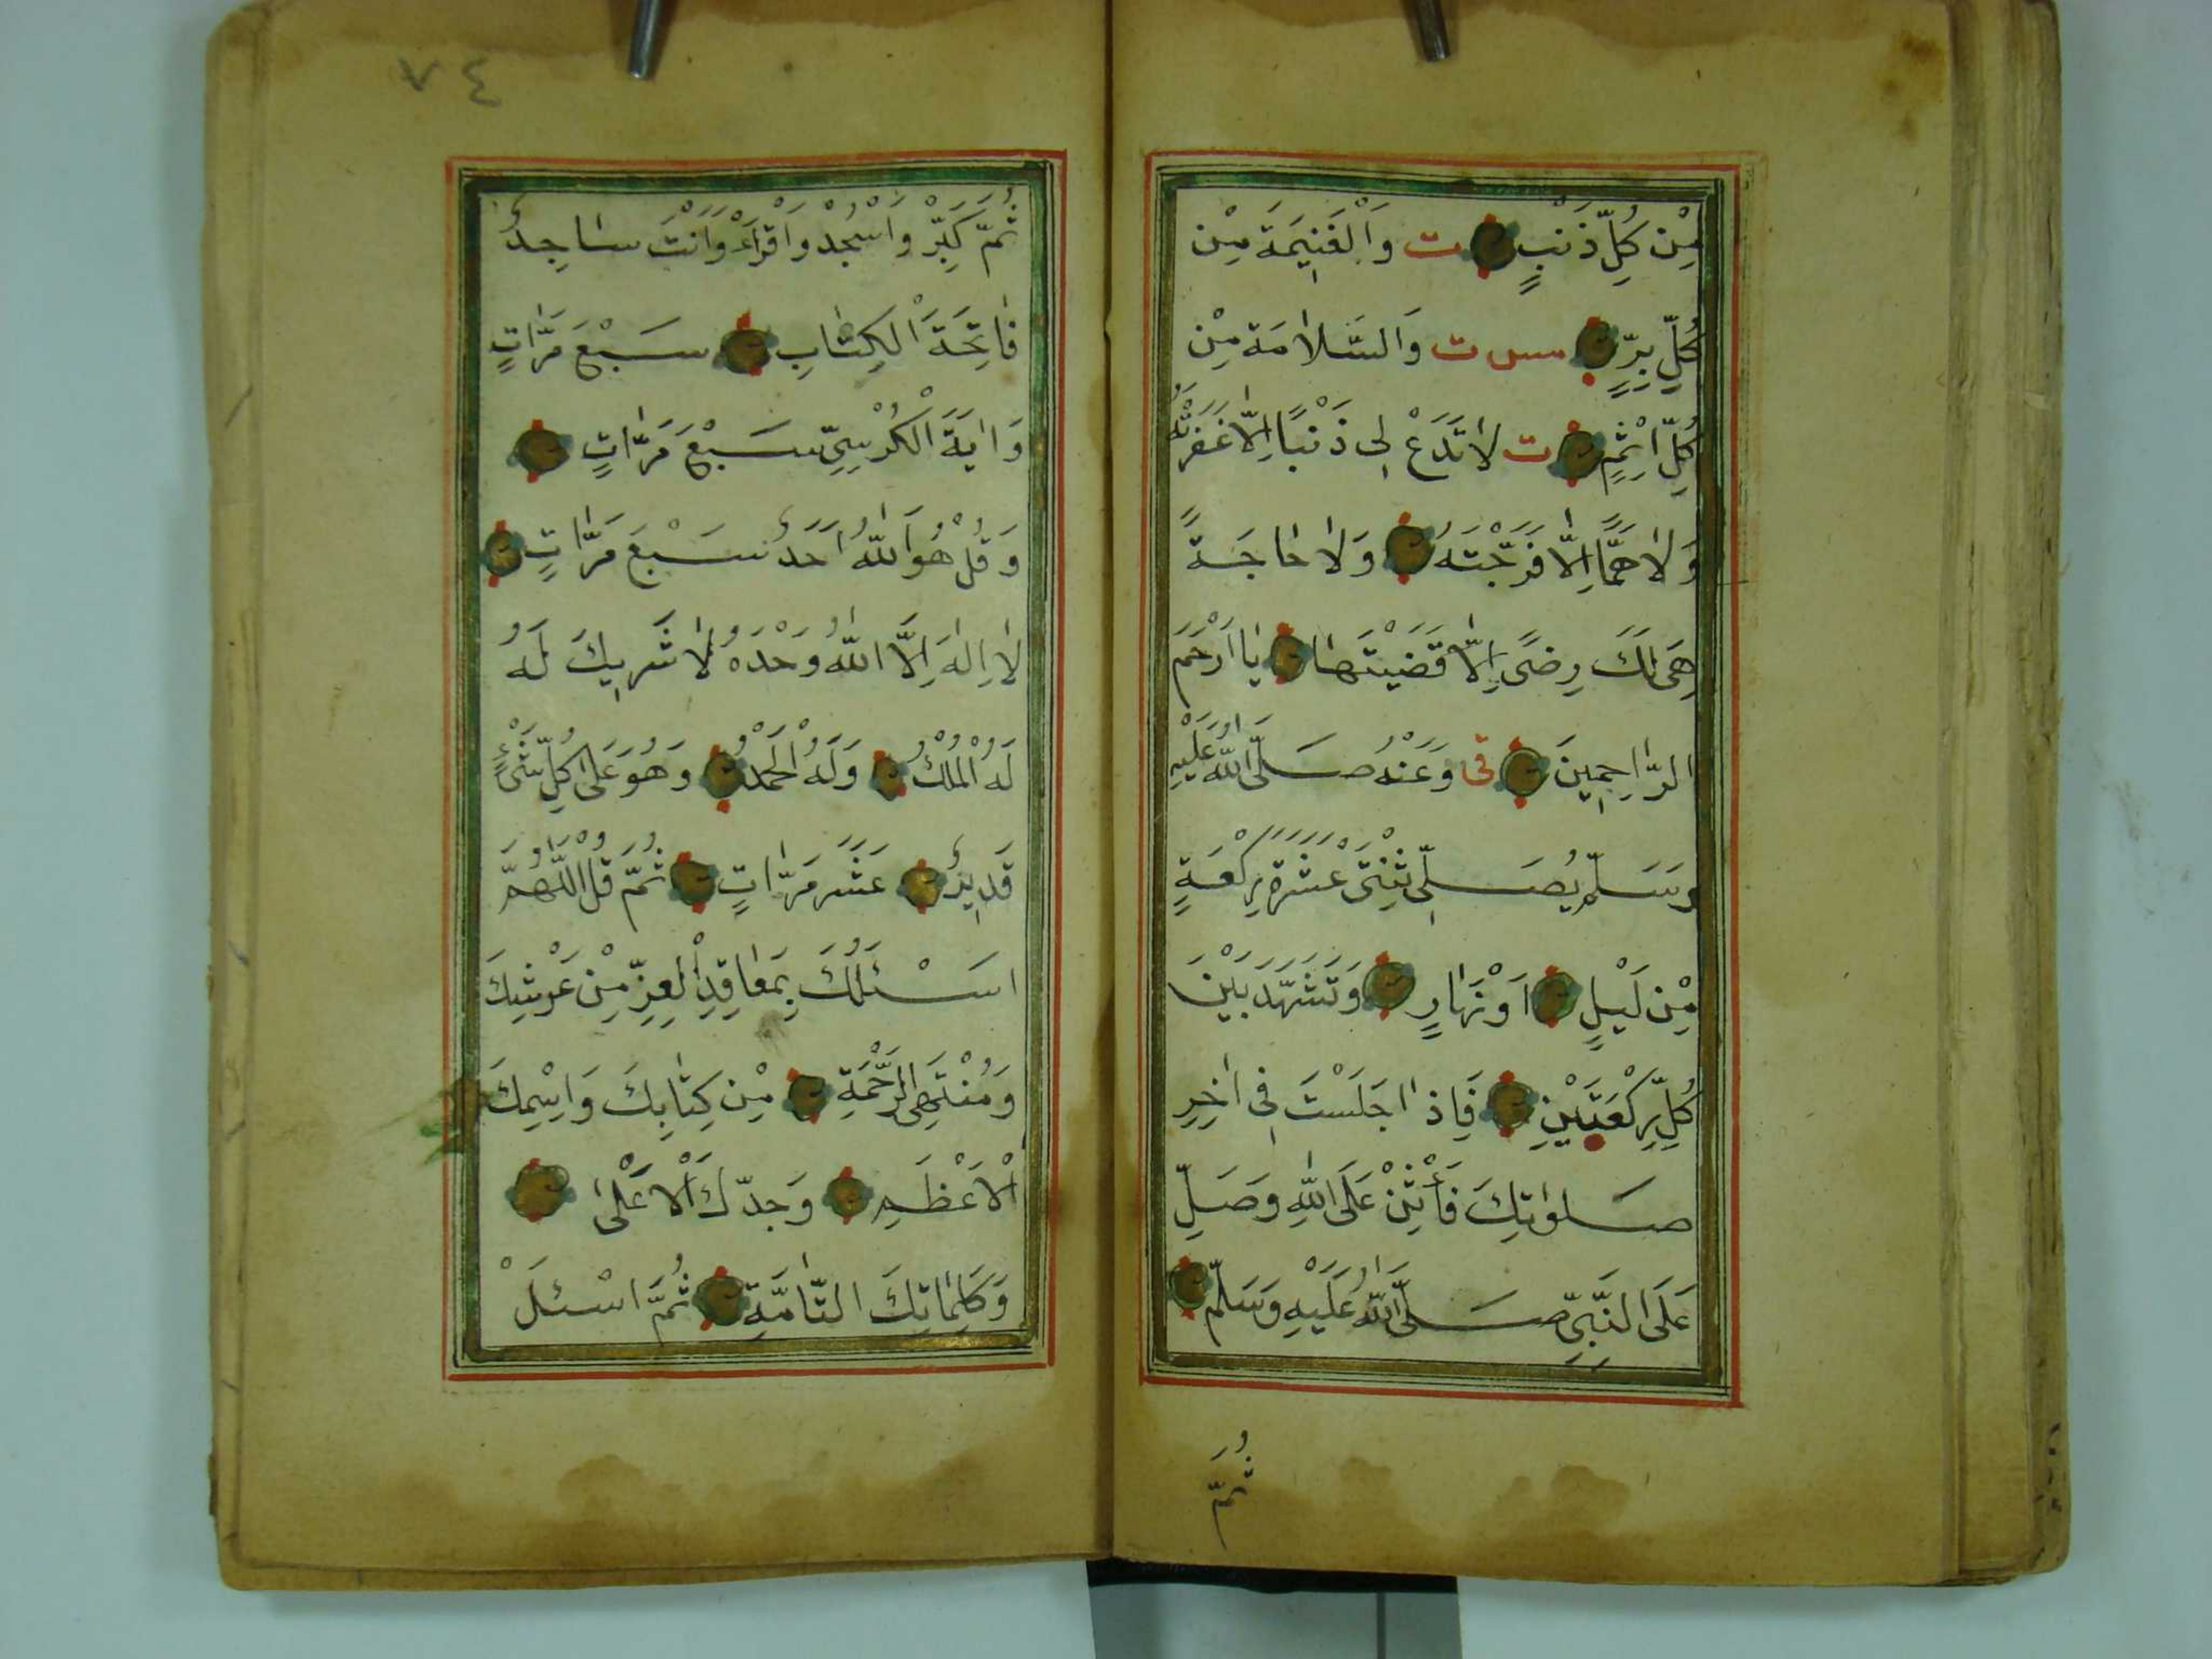 مِنْ كُلِّ ذَنْبٍ ت وَالْغَنِيمَةَ مِنْ
كُلِّ بِرٍّ مس ت وَالسَّلَامَةَ مِنْ
كُلِّ اِثْمٍ ت لَا تَدَعْ لِى ذَنْبًا اِلَّا غَفَرْتَهُ
وَلَا هَمًّا اِلَّا فَرَّجْتَهُ وَلَا حَاجَةً
هِىَ لَكَ رِضًى اِلَّا قَضَيْتَهَا يَا اَرْحَمَ
الرَّاحِمِينَ قى وَعَنْهُ صَلَّى اللّٰهُ عَلَيْهِ
وَسَلَّمَ يُصَلِّى ثِنْتَىْ عَشْرَةَ رَكْعَةٍ
مِنْ لَيْلٍ اَوْ نَهَارٍ وَتَشَهَّدَ بَيْنَ
كُلِّ رَكْعَتَيْنِ فَاِذَا جَلَسْتَ فِى اٰخِرِ
صَلٰوتِكَ فَأَثْنِ عَلَى اللّٰهِ وَصَلِّ
عَلَى النَّبِىِّ صَلَّى اللّٰهُ عَلَيْهِ وَسَلَّمَ
ثُمَّ
٧٤
ثُمَّ كَبِّرْ وَاسْجُدْ وَاقْرَاْ وَاَنْتَ سَاجِدٌ
فَاتِحَةَ الْكِتَابِ سَبْعَ مَرَّاتٍ
وَاٰيَةَ الْكُرْسِىِّ سَبْعَ مَرَّاتٍ
وَقُلْ هُوَ اللّٰهُ اَحَدٌ سَبْعَ مَرَّاتٍ
لَا اِلٰهَ اِلَّا اللّٰهُ وَحْدَهُ لَا شَرِيكَ لَهُ
لَهُ الْمُلْكُ وَلَهُ الْحَمْدُ وَهُوَ عَلٰى كُلِّ شَىْءٍ
قَدِيرٌ عَشْرَ مَرَّاتٍ ثُمَّ قُلِ اللّٰهُمَّ
اَسْئَلُكَ بِمَعَاقِدِ الْعِزِّ مِنْ عَرْشِكَ
وَمُنْتَهَى الرَّحْمَةِ مِنْ كِتَابِكَ وَاسْمِكَ
الْاَعْظَمِ وَجَدِّكَ الْاَعْلٰى
وَكَلِمَاتِكَ التَّامَّةِ ثُمَّ اسْئَلْ